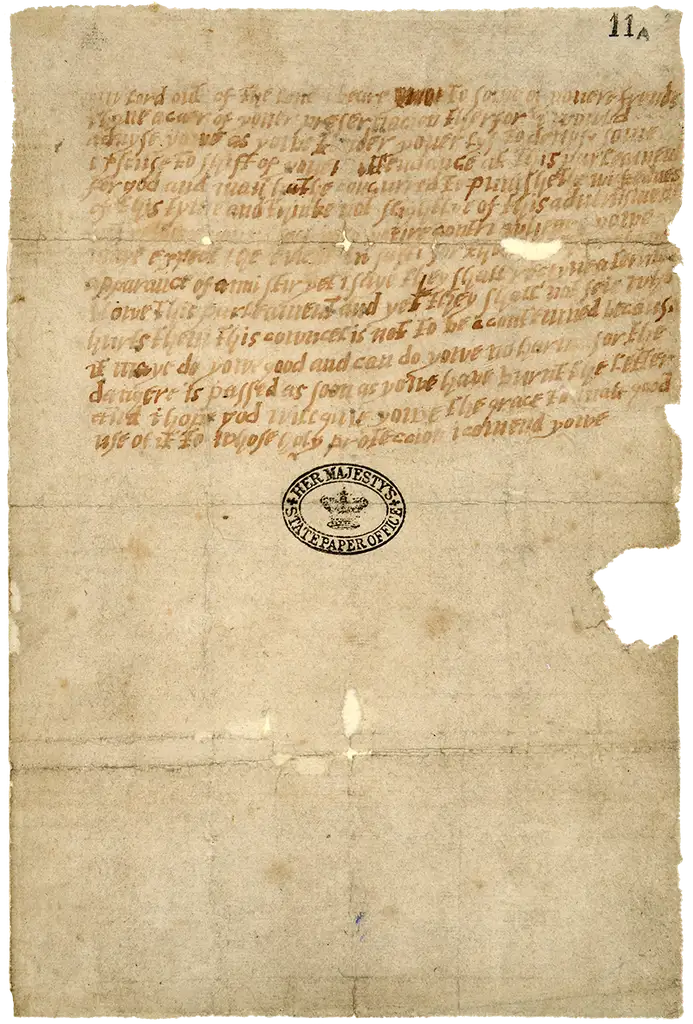 11A
lord out of the loue i beare to some of youere frends
i haue a caer of youer preseruacion therfor i would
aduyse yowe as yowe tender youer lyf to deuise some
exscuse to shift of youer attendance at this parleament
for god and man hathe concurred to punishe the wickednes
of this tyme and thinke not slightlye of this aduertisment
contri wheare yowe
maye expect the in safti for
apparance of anni stir yet i saye they shall receyue a terrible
blowe this parleament and yet they shall not seie who
hurts them this cowncel is not to be acontemned because
it maye do yowe good and can do yowe no harme for the
dangere is passed as soon as yowe have burnt the letter
and i hope god will giue yowe the grace to mak good
use of it to whose holy proteccion i comend yowe
HER MAJESTY'S
STATE PAPER OFFICE